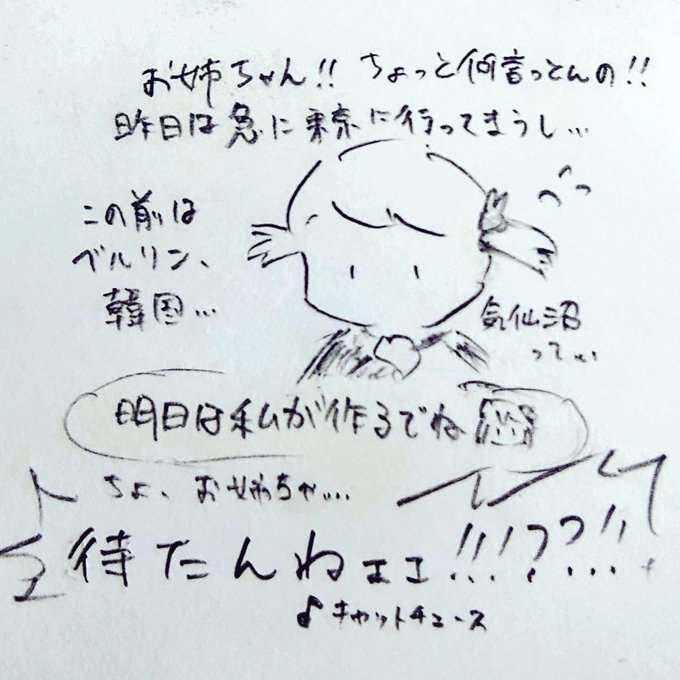 お姉ちゃん!! ちょっと何言っとんの!!
昨日は急に東京に行ってまうし...
この前は
ベルリン、
韓国...
気仙沼
ってぃ
明日は私が作るでね
ちょ、お姉ちゃ...
待たんねェェ!!!???!!
♪キャットチュース